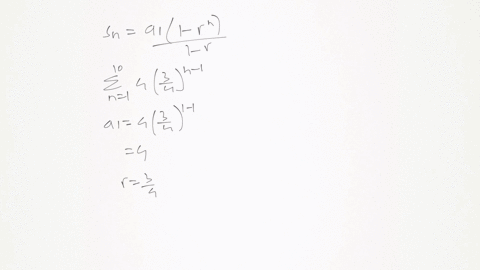 Sn = a1(1-r^n) / 1-r
10 ∑ n=1 4(3/4)^n-1
a1 = 4(3/4)^1-1
= 4
r = 3/4